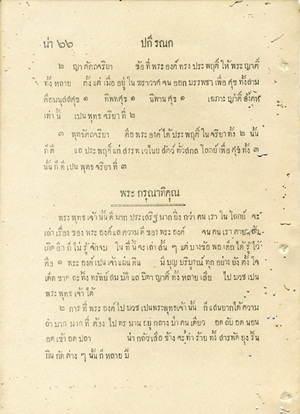 น่า ๒๖ ปกีรณก
๒ ญาตัตถจริยา ข้อที่ พระองค์ ทรง ประพฤติ ให้ พระ ญาติ
ทั้ง หลาย ตั้ง แต่ เมื่อ อยู่ ใน ฆราวาศ จน ออก บรรพชา เพื่อ ศุข ทั้งสาม
คือมนุสสศุข ๑ ทิพพศุข ๑ นิพานศุข ๑ เฉภาะ ญาติ
เท่า นี้ เปน พุทธ จริยา ที่ ๒
๓ พุทธัตถจริยา คือ พระ องค์ ได้ ประพฤติ ใน จริยา ทั้ง ๒ นั้น
ก็ ดี แล ประพฤติ แก่ สรรพ สัตว์ ทั่วสกล โลกย์ เพื่อ ศุข ทั้ง ๓
นั้น ก็ ดี เปน พุทธ จริยา ที่ ๓
พระ กรุณาทิคุณ
พระ พุทธ เจ้า นั้น ดี มาก ประเสริฐ มาก ยิ่ง กว่า คน เรา ใน โลกย์ จะ
เล่า เรื่อง ของ พระ องค์ แล ความ ดี ของ พระ องค์ จน คน เรา ตาย
อีก ก็ ไม่ รู้ จัก จบ ใน ที่ นี้ จะ เล่า สั้น ๆ แต่ บาง ข้อ พอ เด็ก ได้ รู้ ไว้
คือ ๑ พระ องค์ เปน เจ้า แผ่น ดิน มี บุญ บริบูรณ์ ทุก อย่าง ยัง ตั้ง ใจ
เด็ด ขาด จะ ทิ้ง ทรัพย์ สม บัติ แล บิดา ญาติ ทั้ง หลาย เสีย ไป บวช เปน
พระ พุทธ เจ้า ได้
๒ การ ที่ พระ องค์ ไป บวช เปนพระพุทธเจ้า นั้น ก็ แสนยากได้ ความ
ลำ บาก มาก ที่ ต้อง ไป ทร มาน อยู่ กลาง ป่า คน เดียว อด ลับ อด นอน
อด เข้า อด ปลา น่า กลัวเสือ ช้าง จะทำ ร้าย ทั้ง สารพัด ยุง ริ้น
กิน กัด ต่าง ๆ นั้น ก็ หลาย ปี